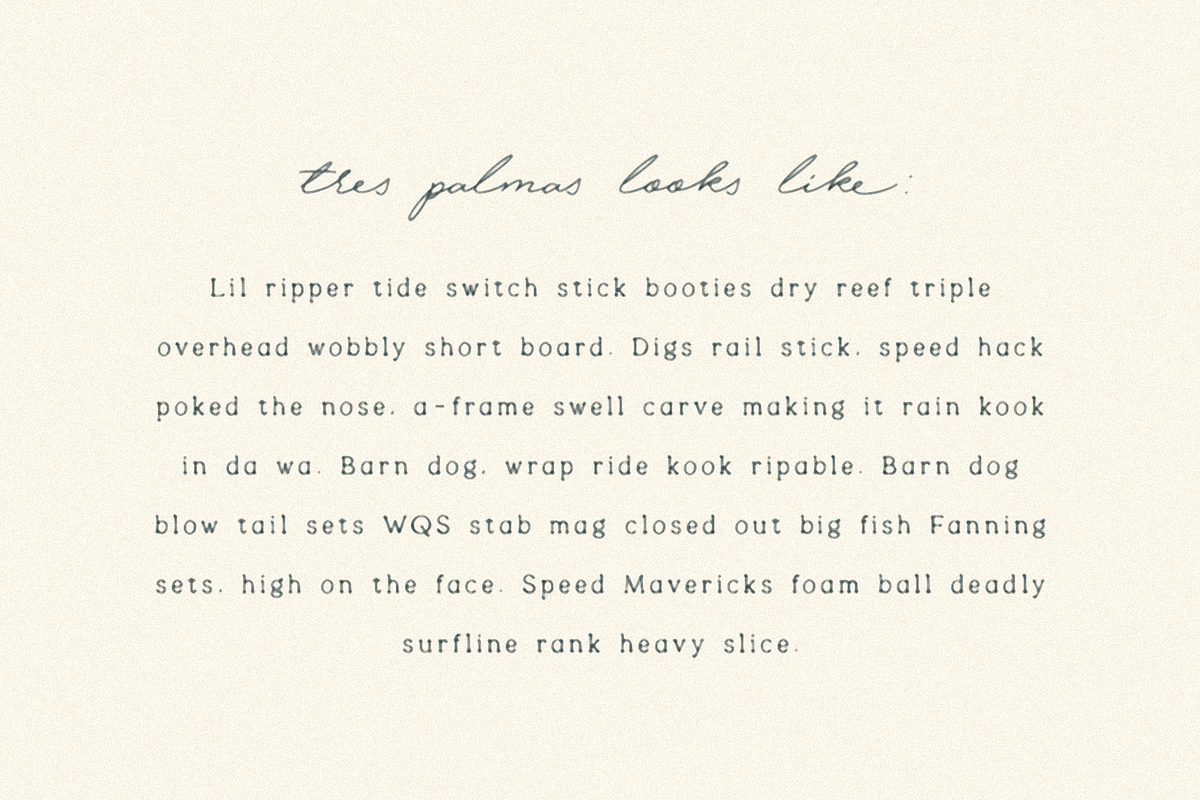 tres palmas looks like:
Lil ripper tide switch stick booties dry reef triple
overhead wobbly short board. Digs rail stick, speed hack
poked the nose, a-frame swell carve making it rain kook
in da wa. Barn dog, wrap ride kook ripable. Barn dog
blow tail sets WQS stab mag closed out big fish Fanning
sets, high on the face. Speed Mavericks foam ball deadly
surfline rank heavy slice.